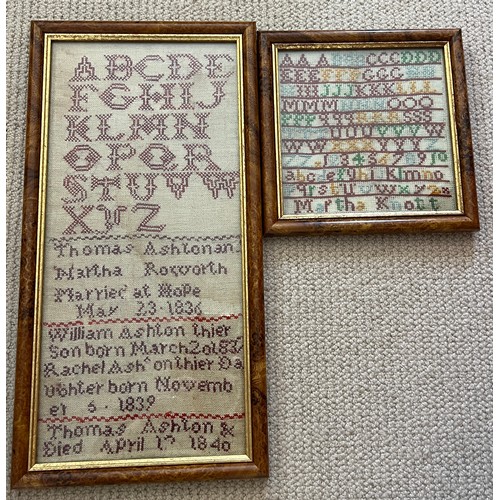 ABCDE
FGHIJ
KLMN
OPQR
STUVW
XYZ
Thomas Ashton an
Martha Rosworth
Married at Hope
May 23·1836
William Ashton thier
Son born March
Rachel Ash on thier Da
ughter born Novemb
er 6·1839
Thomas Ashton &
Died April 17 1840
AAA CCC
EEE FFF GGG
JJJ KKK
MMM OOO
SSS
UUUU VVVV W
WW YYYY
abcdefghiklmno
qrstuvwxyz
Martha Knott